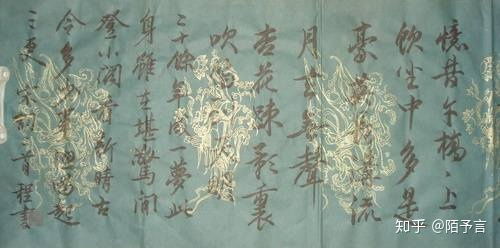 憶昔午橋々上
飲坐中多是
豪英長溝流
月去無聲
杏花疎影裏
吹笛到天明
二十餘年成一夢此
身雖在堪驚閒
登小閣看新晴古
今多少事漁唱起
三更 宋詞一首 程書
知乎 @陌予言